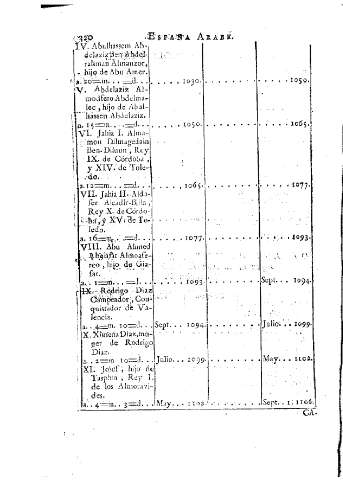 320 ESPAÑA ARABE.
IV. Abalhassem Ab-
delaziz Ben Abdel-
rahman Almanzor,
hijo de Abu Amer.
a. 20=m. ...=d. ... 1030. ... 1050.
V. Abdelaziz Al-
modafero Abdelma-
lec, hijo de Abal-
hassem Abdelaziz.
a. 15=m. ...=d. ... 1050. ... 1065.
VI. Jahia I. Alma-
mon
Ben-Dilnun, Rey
IX. de Córdoba,
y XIV. de Tole-
do.
a. 12=m. ...=d. ... 1065. ... 1077.
VII. Jahia II. Alda-
fer Alcadir-Bila,
Rey X. de Córdo-
ba, y XV. de To-
ledo.
a. 16=m. ...=d. ... 1077. ... 1093.
VIII. Abu Ahmed
hijo de Gia-
far.
a. ..1=m. ...=d. ... 1093 ... Sept. .. 1094.
IX. Rodrigo Diaz
Campeador, Con-
quistador de Va-
lencia.
a. ..4=m. 10=d. .. Sept. ... 1094. ... Julio... 1099.
X. Ximena Diaz, mu-
ger de Rodrigo
Diaz.
a. ..2=m. 10=d. .. Julio ... 1099. ... May. ... 1102.
XI. Josef, hijo de
Tasphin, Rey I.
de los Almoravi-
des.
a. ..4=m. ..3=d. .. May. ... 1102. ... Sept. .. 1106.
CA-